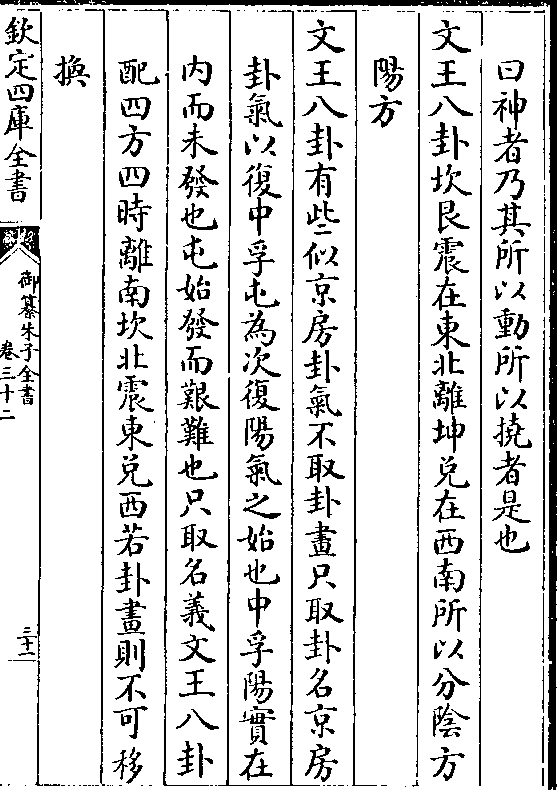 曰神者乃其所以動所以撓者是也
文王八卦坎艮震在東北離坤兌在西南所以分陰方
陽方
文王八卦有些似京房卦氣不取卦畫只取卦名京房
卦氣以復中孚屯為次復陽氣之始也中孚陽實在
内而未發也屯始發而艱難也只取名義文王八卦
配四方四時離南坎北震東兌西若卦畫則不可移
換
欽定四庫全書
御纂朱子全書
卷三十二
三十二